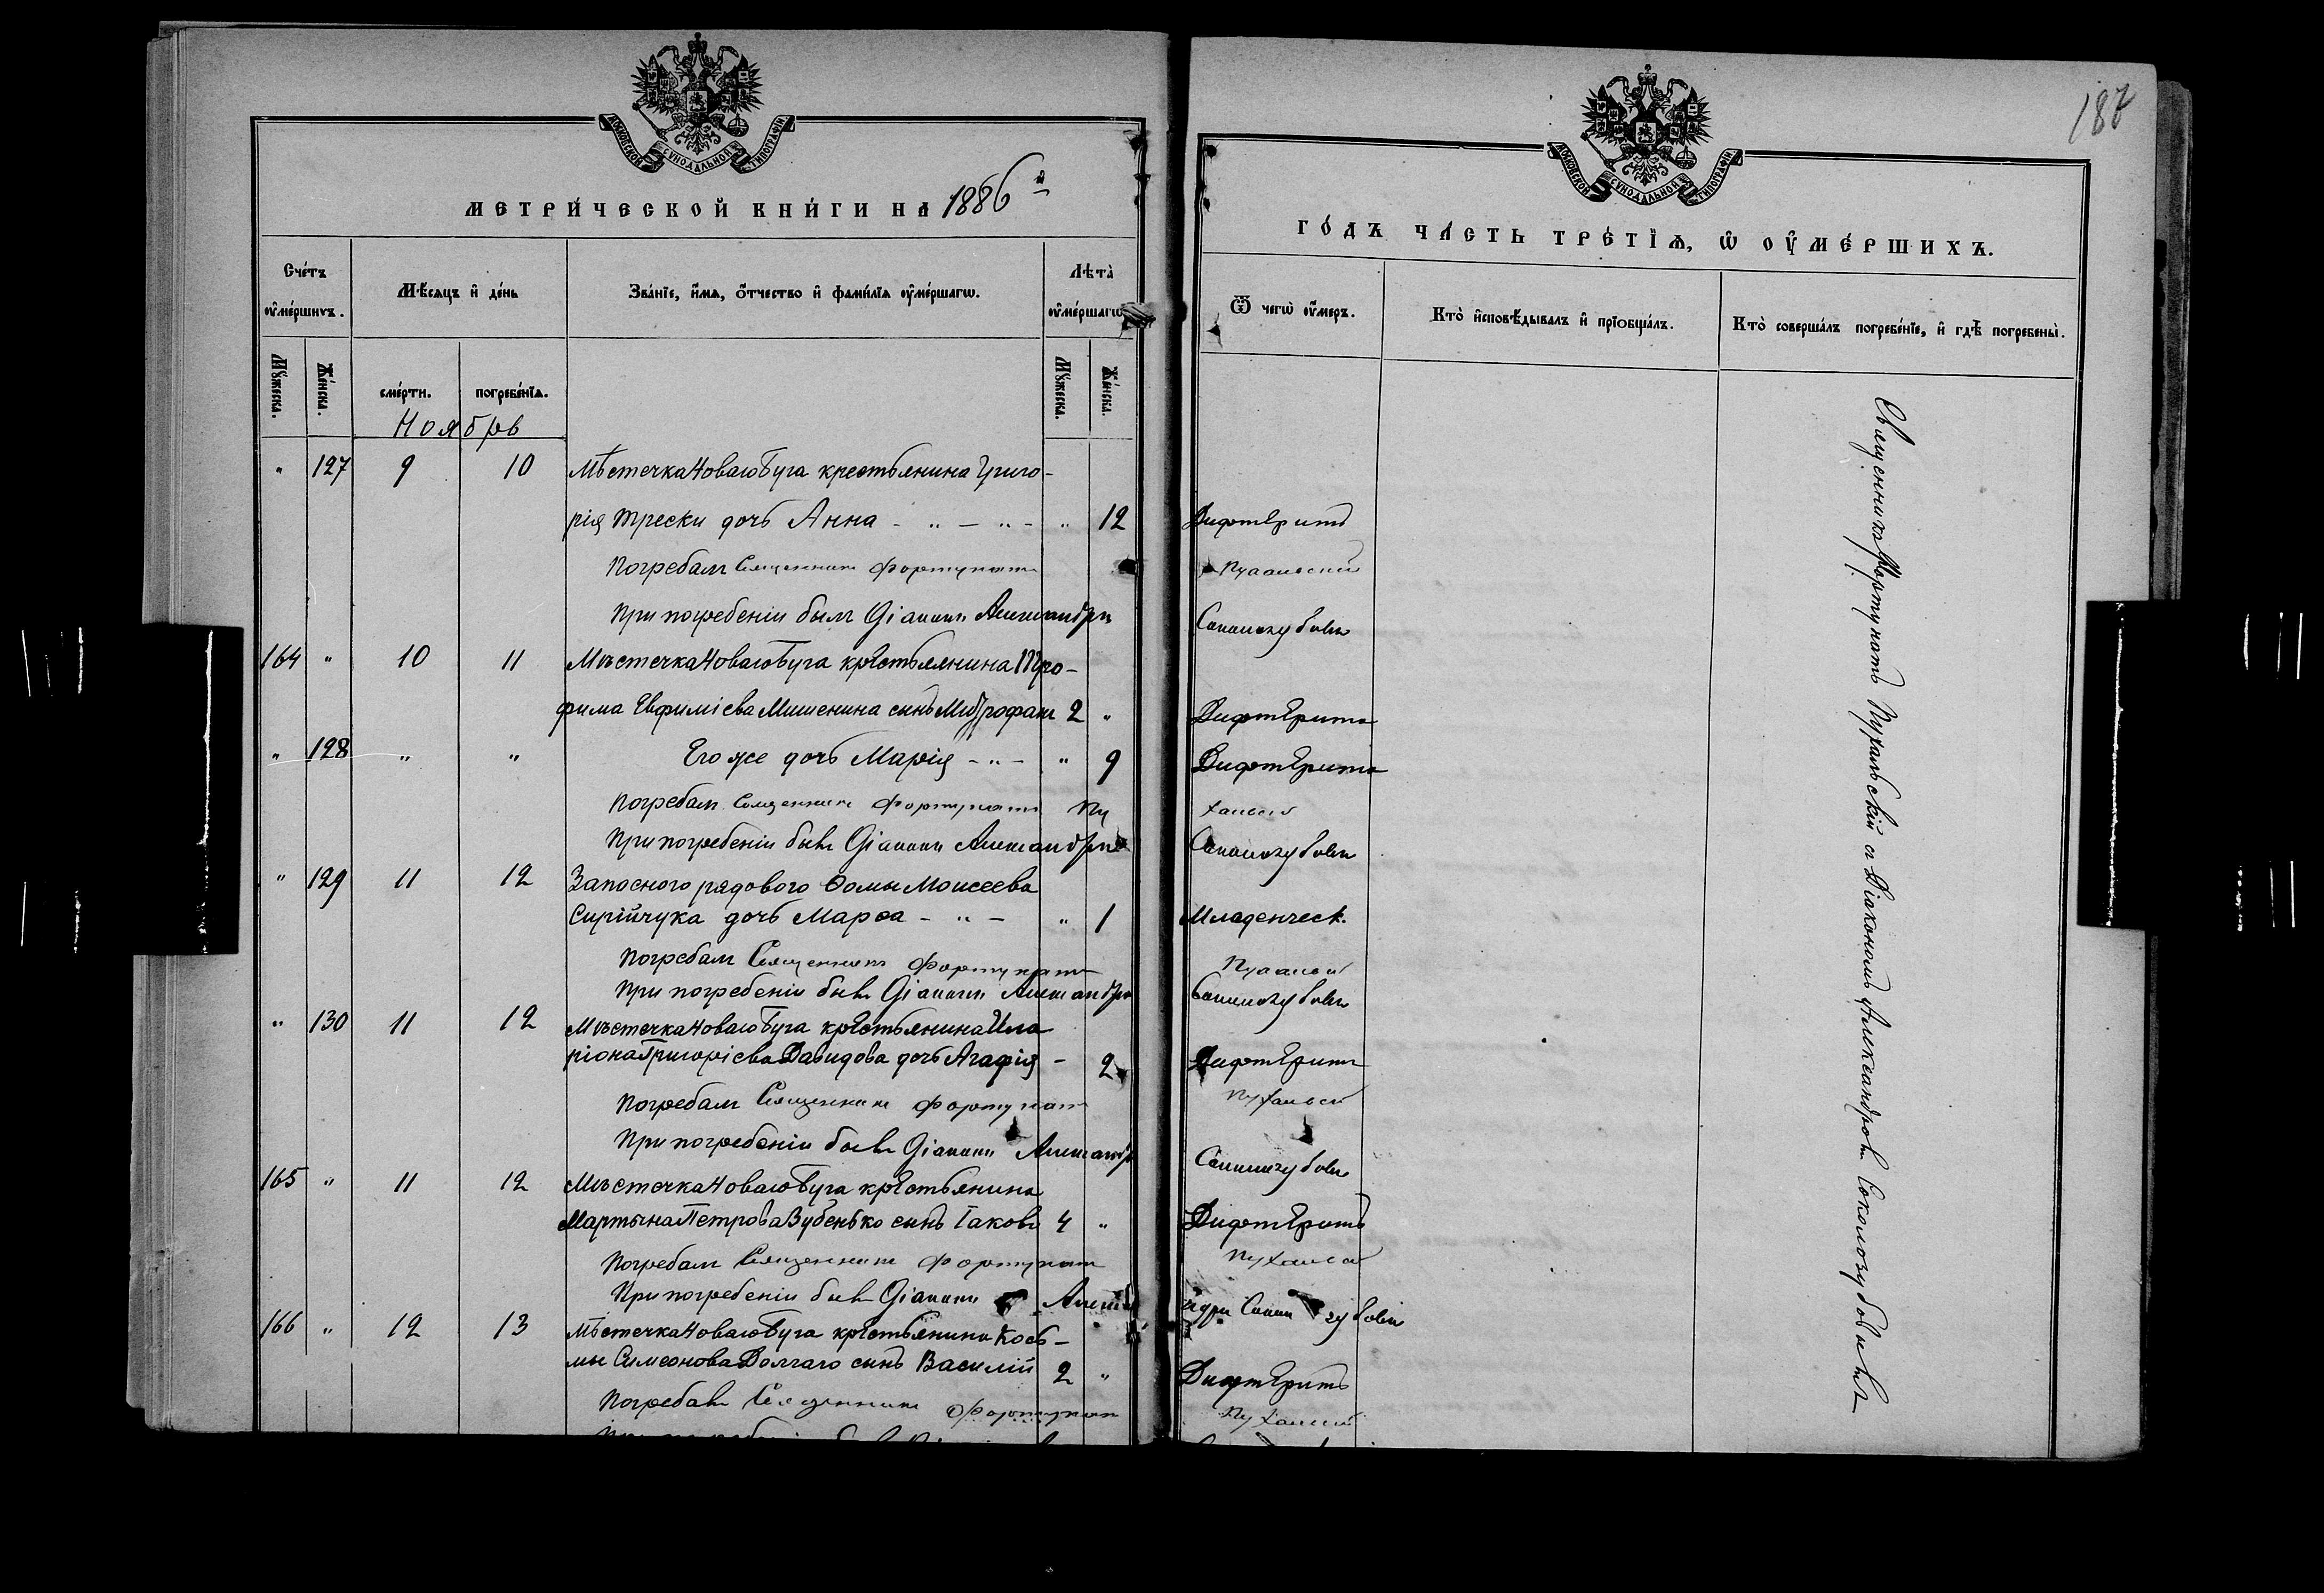 МОСКОВСКОЙ СѴНОДАЛЬНОЙ ТИПОГРАФІИ
МЕТРИ́ЧЕСКОЙ КНИ́ГИ НА 1886 й
Сче́тъ ᲂу҆ме́ршихъ.
Мѣ́сяцъ и҆ де́нь
Зва́нїе, и҆́мѧ, ѻ҆́тчество и҆ фами́лїѧ ᲂу҆ме́ршагѡ.
Лѣта̀ ᲂу҆ме́ршагѡ
Мꙋ́жеска.
Же́нска.
сме́рти.
погребе́нїѧ.
Мꙋ́жеска.
Же́нска.
Ноябрь
" 127 9 10 Мѣстечка Новаго Буга крестьянина Григо-
рія Трески дочь Анна - " - " - " 12
Погребалъ Священникъ Фортунатъ
При погребеніи былъ Діаконъ Александръ
164 " 10 11 Мѣстечка Новаго Буга крестьянина Тро-
фима Евфиміева Мишенина сынъ Митрофанъ 2 "
" 128 " " Его же дочь Марія - " - " 9
Погребалъ Священникъ Фортунатъ Пу
При погребеніи былъ Діаконъ Александръ
" 129 11 12 Запасного рядового Ѳомы Моисеева
Сирійчука дочь Марѳа - " - " 1
Погребалъ Священникъ Фортунатъ
При погребеніи былъ Діаконъ Александръ
" 130 11 12 Мѣстечка Новаго Буга крестьянина Ила
ріона Григоріева Давидова дочь Агафія - 2
Погребалъ Священникъ Фортунатъ
При погребеніи былъ Діаконъ Александръ
165 " 11 12 Мѣстечка Новаго Буга крестьянина
Мартына Петрова Зубенько сынъ Іаковъ 4 "
Погребалъ Священникъ Фортунатъ
При погребеніи былъ Діаконъ Алекса
166 " 12 13 Мѣстечка Новаго Буга крестьянина Кось-
мы Симеонова Долгаго сынъ Василій 2 "
Погребалъ Священникъ Фортунатъ
187
МОСКОВСКОЙ СѴНОДАЛЬНОЙ ТИПОГРАФІИ
ГО́ДЪ ЧА́СТЬ ТРЕ́ТЇѦ, Ѡ҆ ОУ҆МЕ́РШИХЪ.
Ѿ чегѡ̀ ᲂу҆́меръ.
Кто̀ и҆сповѣ́дывалъ и҆ прїѡбща́лъ.
Кто̀ соверша́лъ погребе́нїе, и҆ гдѣ̀ погребены̀.
Дифтеритъ
Пухальскій
Соколозубовъ
Дифтерита
Дифтерита
хальскій
Соколозубовъ
Младенческ.
Пухальскій
Соколозубовъ
Дифтеритъ
Пухальскій
Соколозубовъ
Дифтеритъ
Пухальскій
ндръ Соколозубовъ
Дифтеритъ
Пухальскій
Священникъ Фортунатъ Пухальскій съ Діакономъ Александромъ Соколозубовымъ